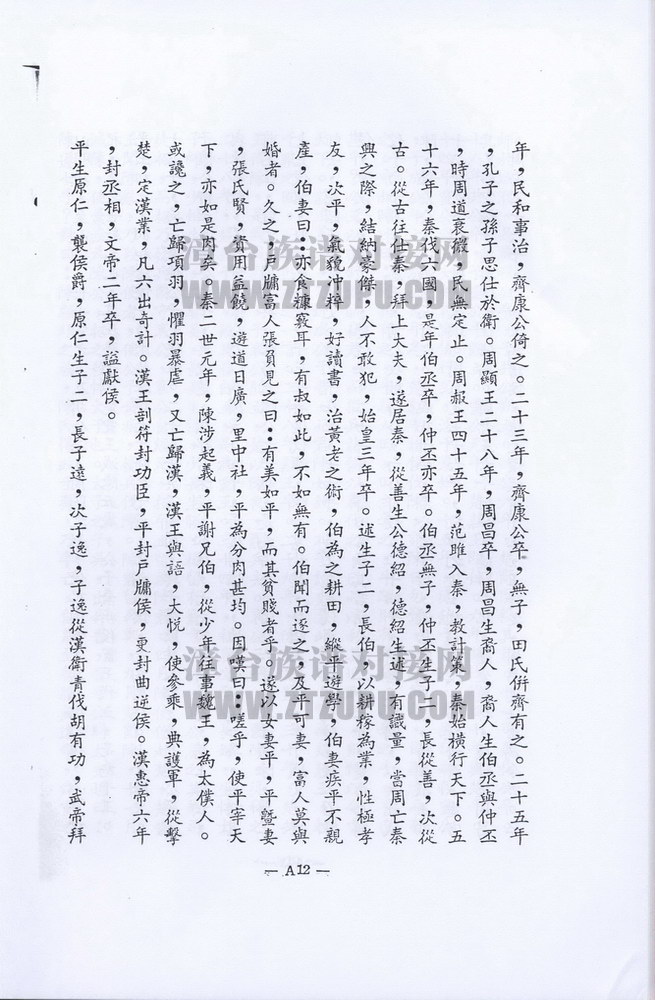 年，民和事治，齊康公倚之。二十三年，齊康公卒，無子，田氏併齊有之。二十五年
，孔子之孫子思仕於衛。周顯王二十八年，周昌卒，周昌生裔人，裔人生伯丞與仲丕
，時周道衰微，民無定止。周赧王四十五年，范雎入秦，教計策，秦始橫行天下。五
十六年，秦伐六國，是年伯丞卒，仲丕亦卒。伯丞無子，仲丕生子二，長從善，次從
古。從古往仕秦，拜上大夫，遂居秦，從善生公德紹，德紹生述，有識量，當周亡秦
興之際，結納豪傑，人不敢犯，始皇三年卒。述生子二，長伯，以耕稼為業，性極孝
友，次平，氣貌冲粹，好讀書，治黃老之術，伯為之耕田，縱平遊學，伯妻疾平不親
產，伯妻曰：亦食糠覈耳，有叔如此，不如無有。伯聞而逐之，及平可妻，富人莫與
婚者。久之，戶牖富人張負見之曰：有美如平，而其貧賤者乎。遂以女妻平，平暨妻
，張氏賢，資用益饒，遊道日廣，里中社，平為分肉甚均。因嘆曰：嗟乎，使平宰天
下，亦如是肉矣。秦二世元年，陳涉起義，平謝兄伯，從少年往事魏王，為太僕人。
或讒之，亡歸項羽，懼羽暴虐，又亡歸漢，漢王與語，大悅，使參乘，典護軍，從擊
楚，定漢業，凡六出奇計。漢王剖符封功臣，平封戶牖侯，更封曲逆侯。漢惠帝六年
，封丞相，文帝二年卒，謚獻侯。
平生原仁，襲侯爵，原仁生子二，長子遠，次子逸，子逸從漢衛青伐胡有功，武帝拜
— A12 —
漳台族谱对接网
WWW.ZTZUPU.COM
漳台族谱对接网
WWW.ZTZUPU.COM